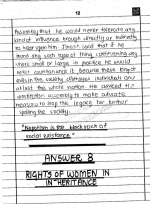 12
Assembly that he would never tolerate any
kind of influence brought directly or indirectly
to bear upon him. Jinnah said that if he
found any such type of thing continuing any
where small or large, in practice he would
never countenance it. Because these types of
evils in the society destroyes individuals and
at last the whole nation. He advised the
constituent assembly to make adequate
measures to stop this legacy for further
spoiling the society.
"Nepotism is the black rock of
social existence"
ANSWER 8
RIGHTS OF WOMEN IN
INHERITANCE